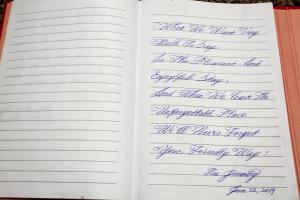 What We Want Very
Much To Say
Is The Pleasant And
Enjoyful Stay,
And When We Leave The
Unforgettable Place
We'll Never Forget
Your Friendly Way!
The
Jan 22, 2019